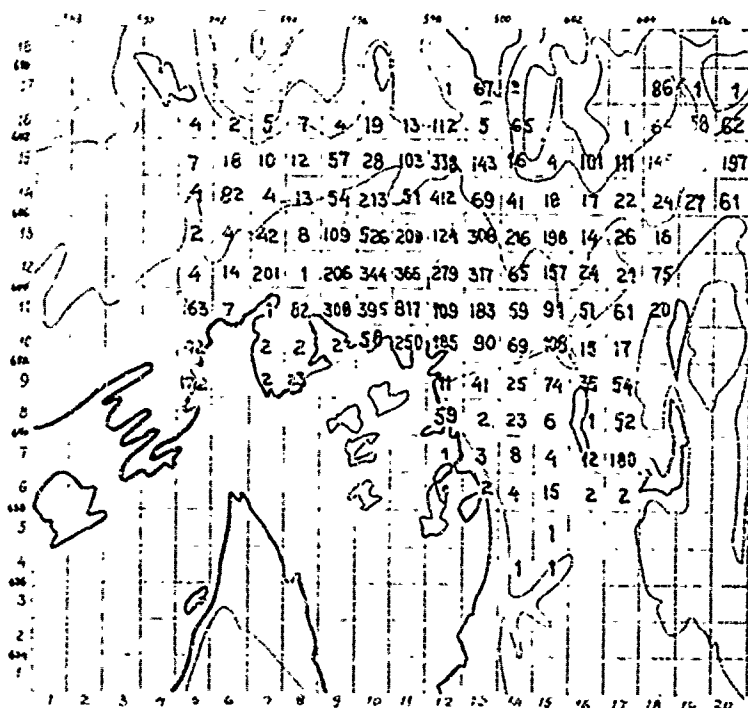 596 598 600 602 604 606
18
17 1 67 86 1 1
16 4 2 5 7 4 19 13 112 5 65 1 58 62
15 7 18 10 12 57 28 103 338 143 16 4 101 111 197
14 4 82 4 13 54 213 51 412 69 41 18 17 22 24 27 61
13 2 4 42 8 109 526 209 124 308 216 198 14 26 16
12 4 14 201 1 206 344 366 279 317 65 157 24 21 75
11 163 7 1 82 308 395 817 109 183 59 51 61 20
10 2 2 2 58 250 185 90 69 108 15 17
9 2 23 11 41 25 74 35 54
8 59 2 23 6 1 52
7 1 3 8 4 12 180
6 2 4 15 2 2
5 1
4 1 1
3
2
1
1 2 3 4 5 6 7 8 9 10 11 12 13 14 15 16 17 18 19 20